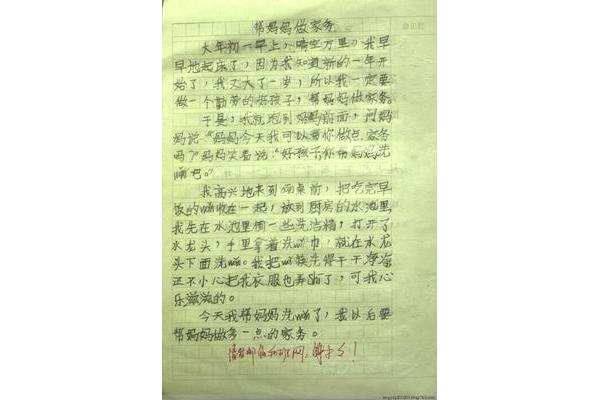 帮妈妈做家务
大年初一早上，晴空万里。我早
早地起床了，因为我知道新的一年开
始了，我又大了一岁，所以我一定要
做一个勤劳的好孩子，帮妈妈做家务。
于是，我就跑到妈妈前面，问妈
妈说“妈妈今天我可以帮你做点家务
吗？”妈妈笑着说“好孩子你帮妈妈洗
碗吧。”
我高兴地来到桌前，把吃完早
饭的碗收在一起，放到厨房的水池里，
我先在水池里倒一些洗洁精，打开了
水龙头，手里拿着洗碗巾，就在水龙
头下面洗碗。我把碗筷洗得干干净净
还不小心把我衣服也弄湿了，可我心
乐滋滋的。
今天我帮妈妈洗碗了，我以后要
帮妈妈做多一点的家务。